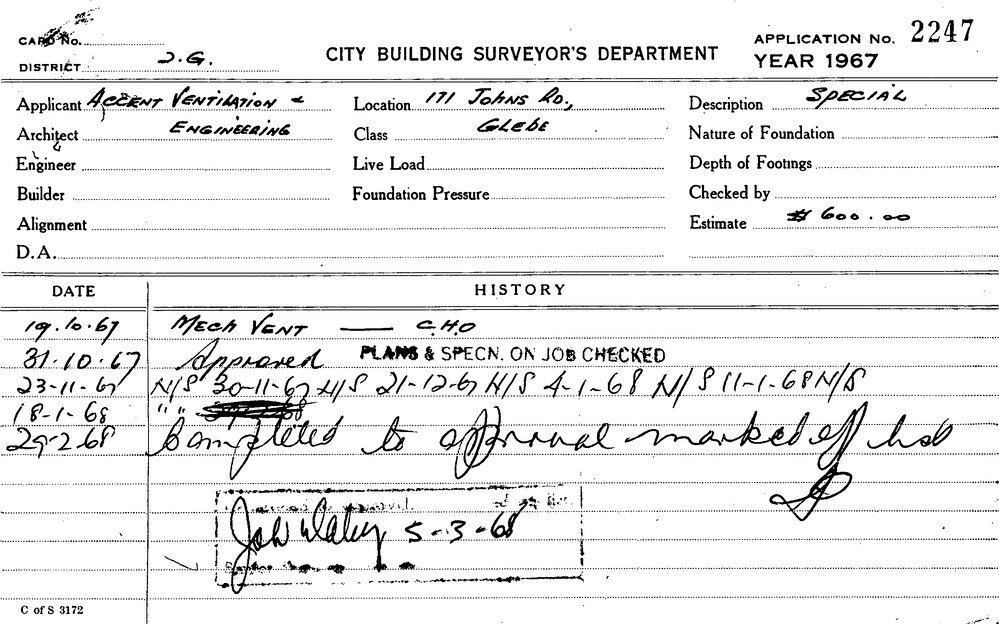 CARD No.
DISTRICT J.G.
CITY BUILDING SURVEYOR'S DEPARTMENT
APPLICATION No. 2247
YEAR 1967
Applicant ACCENT VENTILATION &
Architect ENGINEERING
Engineer
Builder
Alignment
D.A.
Location 171 JOHNS RD.,
Class GLEBE
Live Load
Foundation Pressure
Description SPECIAL
Nature of Foundation
Depth of Footings
Checked by
Estimate $ 600.00
DATE HISTORY
19.10.67 MECH VENT — C.H.O
31-10-67 Approved PLANS & SPECN. ON JOB CHECKED
23-11-67 N/S 30-11-67 N/S 21-12-67 N/S 4-1-68 N/S 11-1-68 N/S
18-1-68 " "
29-2-68 Completed to approval marked off
5-3-68
C of S 3172